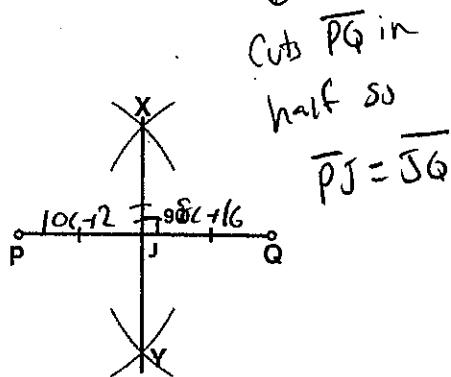 Cuts PQ in
half so
PJ = JQ
X
10x+2
90
8x+16
P
J
Q
Y